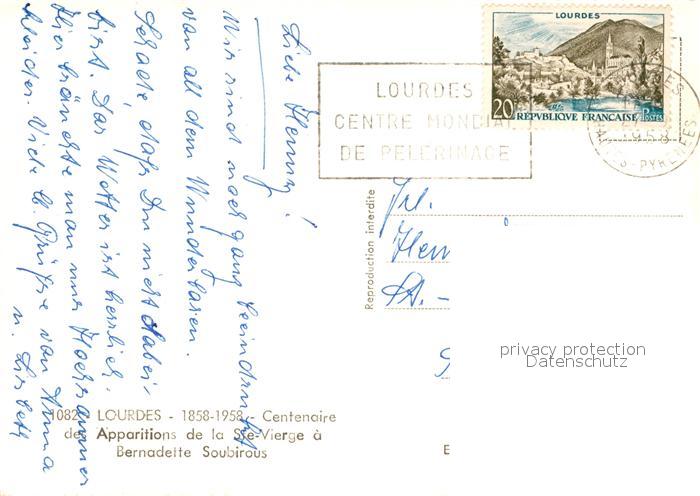 Liebe Henny!
Wir sind noch ganz beeindruckt
von all dem Wunderbaren.
Schade, daß Du nicht dabei
bist. Das Wetter ist herrlich.
Hier bräuchte man nur
Kleider. Viele lb. Grüße von Anna
u. Lisbeth
LOURDES
CENTRE MONDIAL
DE PELERINAGE
LOURDES
20F REPUBLIQUE FRANÇAISE POSTES
1958
PYRENEES
Reproduction interdite
Frl.
Hen
St.-
privacy protection
Datenschutz
E
1082 - LOURDES - 1858-1958 - Centenaire
des Apparitions de la Ste-Vierge à
Bernadette Soubirous